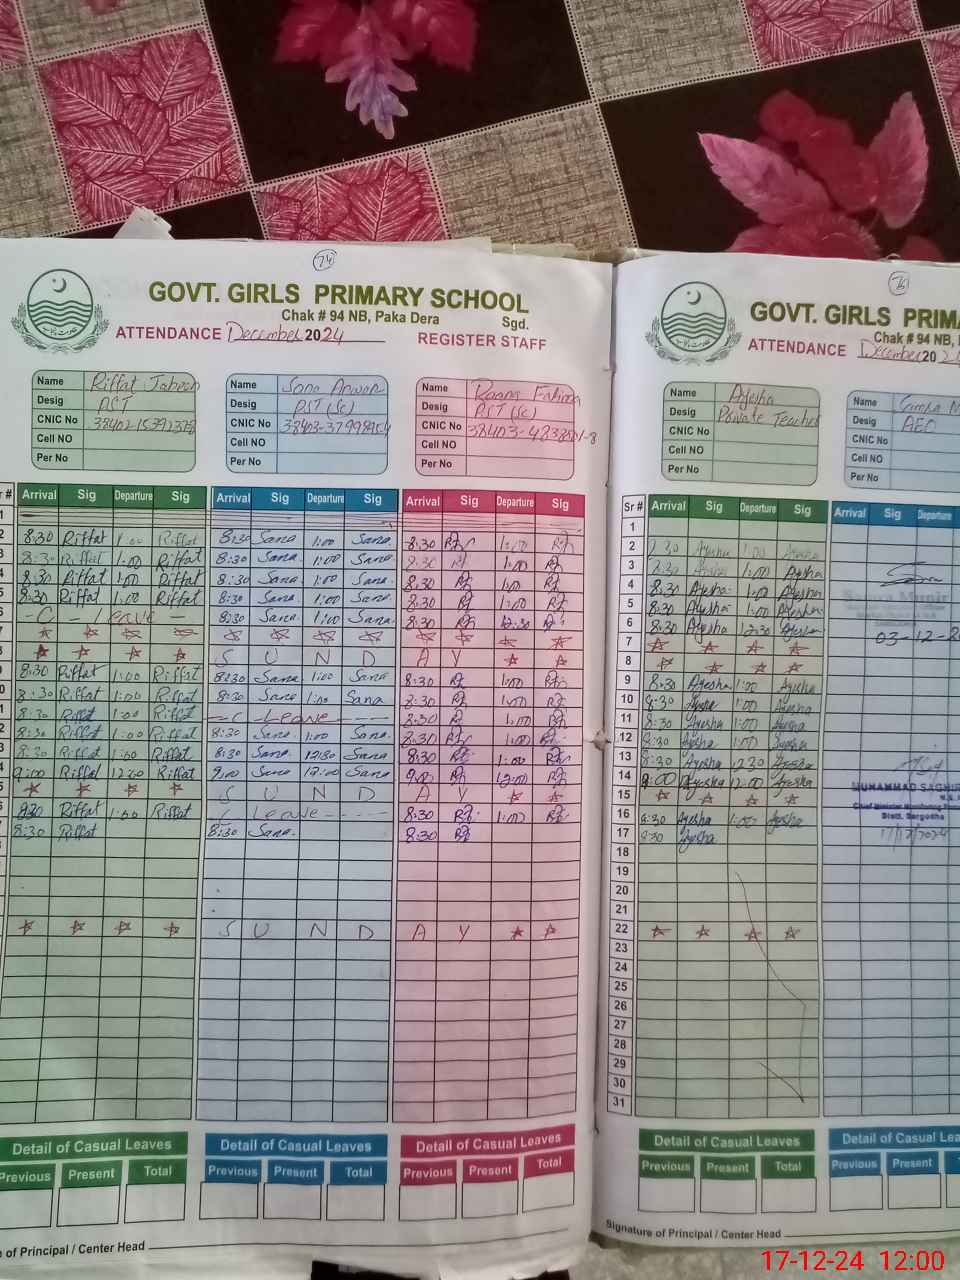 74
GOVT. GIRLS PRIMARY SCHOOL
Chak # 94 NB, Paka Dera
Sgd.
ATTENDANCE December 2024 REGISTER STAFF
Name Riffat Jabeen
Desig PST
CNIC No
Cell NO
Per No
Name Sana Anwar
Desig PST (Sc)
CNIC No
Cell NO
Per No
Name Fatima
Desig PST (Sc)
CNIC No
Cell NO
Per No
Arrival Sig Departure Sig Arrival Sig Departure Sig Arrival Sig Departure Sig
8:30 Riffat 1:00 Riffat 8:30 Sana 1:00 Sana 8:30 1:00
8:30 Riffat 1:00 Riffat 8:30 Sana 1:00 Sana 8:30 1:00
8:30 Riffat 1:00 Riffat 8:30 Sana 1:00 Sana 8:30 1:00
8:30 Riffat 1:00 Riffat 8:30 Sana 1:00 Sana 8:30 1:00
- C - Leave - 8:30 Sana 1:00 Sana 8:30 12:30
S U N D A Y
8:30 Riffat 1:00 Riffat 8:30 Sana 1:00 Sana 8:30 1:00
8:30 Riffat 1:00 Riffat 8:30 Sana 1:00 Sana 8:30 1:00
8:30 Riffat 1:00 Riffat C Leave 8:30 1:00
8:30 Riffat 1:00 Riffat 8:30 Sana 1:00 Sana 8:30 1:00
8:30 Riffat 1:00 Riffat 8:30 Sana 12:30 Sana 8:30 1:00
9:00 Riffat 12:00 Riffat 9:00 Sana 12:00 Sana 9:00 12:00
S U N D A Y
8:30 Riffat 1:00 Riffat Leave 8:30 1:00
8:30 Riffat 8:30 Sana 8:30
S U N D A Y
Detail of Casual Leaves Detail of Casual Leaves Detail of Casual Leaves
Previous Present Total Previous Present Total Previous Present Total
of Principal / Center Head
GOVT. GIRLS
Chak # 94 NB,
ATTENDANCE December 20
Name Ayesha
Desig Private Teacher
CNIC No
Cell NO
Per No
Name
Desig AEO
CNIC No
Cell NO
Per No
Sr # Arrival Sig Departure Sig Arrival Sig Departure
1
2 8:30 Ayesha 1:00 Ayesha
3 8:30 Ayesha 1:00 Ayesha
4 8:30 Ayesha 1:00 Ayesha
5 8:30 Ayesha 1:00 Ayesha
6 8:30 Ayesha 12:30 Ayesha
03-12-20
7
8
9 8:30 Ayesha 1:00 Ayesha
10 8:30 Ayesha 1:00 Ayesha
11 8:30 Ayesha 1:00 Ayesha
12 8:30 Ayesha 1:00 Ayesha
13 8:30 Ayesha 12:30 Ayesha
14 9:00 Ayesha 12:00 Ayesha
MUHAMMAD SAGHIR
15
16 8:30 Ayesha 1:00 Ayesha
Chief Minister Monitoring
Distt. Sargodha
17 8:30 Ayesha
17/12/2024
18
19
20
21
22
23
24
25
26
27
28
29
30
31
Detail of Casual Leaves Detail of Casual
Previous Present Total Previous Present
Signature of Principal / Center Head
17-12-24 12:00